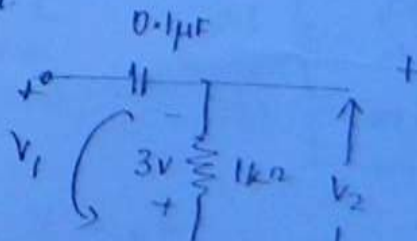 0.1μF
+
+
V₁
-
3v
1kΩ
+
V₂